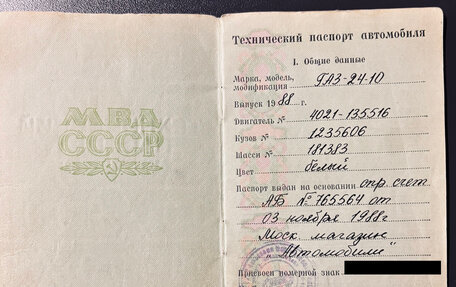 МВД
СССР
Технический паспорт автомобиля
I. Общие данные
Марка, модель,
модификация ГАЗ-24-10
Выпуск 1988 г.
Двигатель № 4021-135516
Кузов № 1235606
Шасси № 181383
Цвет белый
Паспорт выдан на основании спр. счет
АБ № 765564 от
03 ноября 1988г
Моск. магазин
"Автомобили"
Присвоен номерной знак